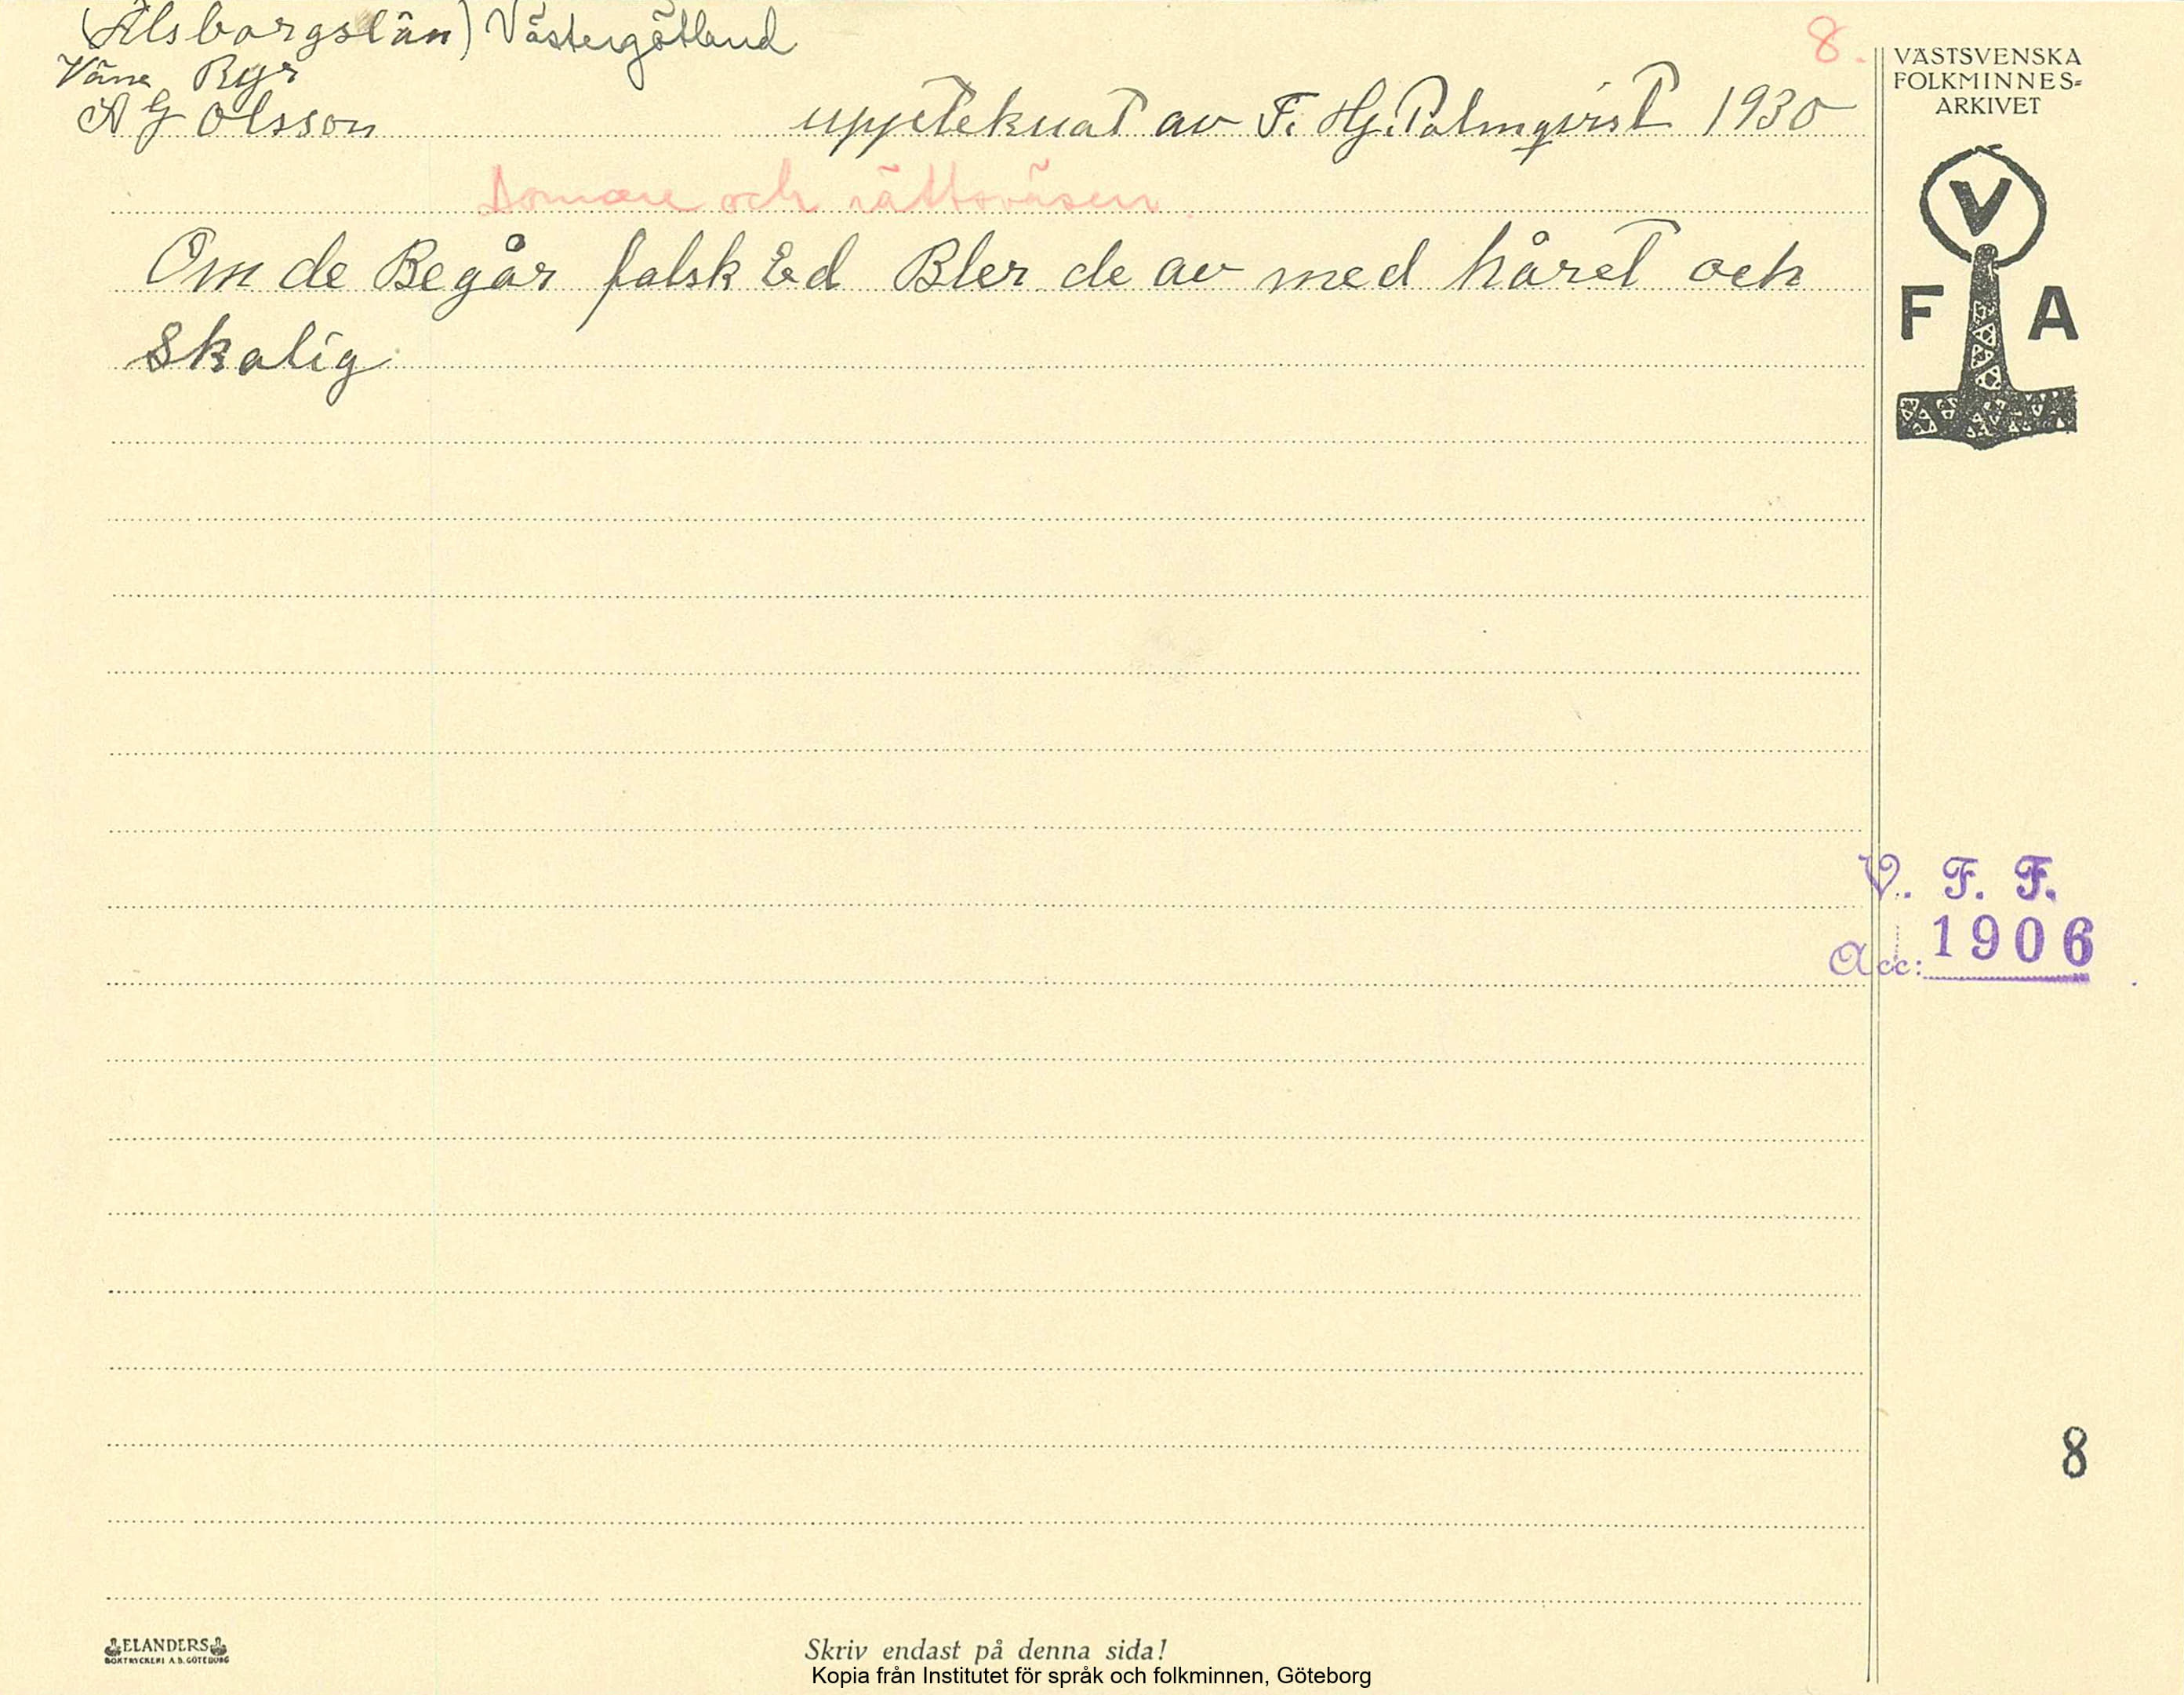 (Älsborgslän) Västergötland
8.
Väne Ryr
A G Olsson
uppteknat av F. Hj. Palmqvist 1930
Domare och rättsväsen.
Om de Begår falsk Ed Bler de av med håret och
Skalig
VÄSTSVENSKA
FOLKMINNES=
ARKIVET
V
F A
V. F. F.
Acc: 1906
8
ELANDERS
BOKTRYCKERI A.B. GÖTEBORG
Skriv endast på denna sida!
Kopia från Institutet för språk och folkminnen, Göteborg